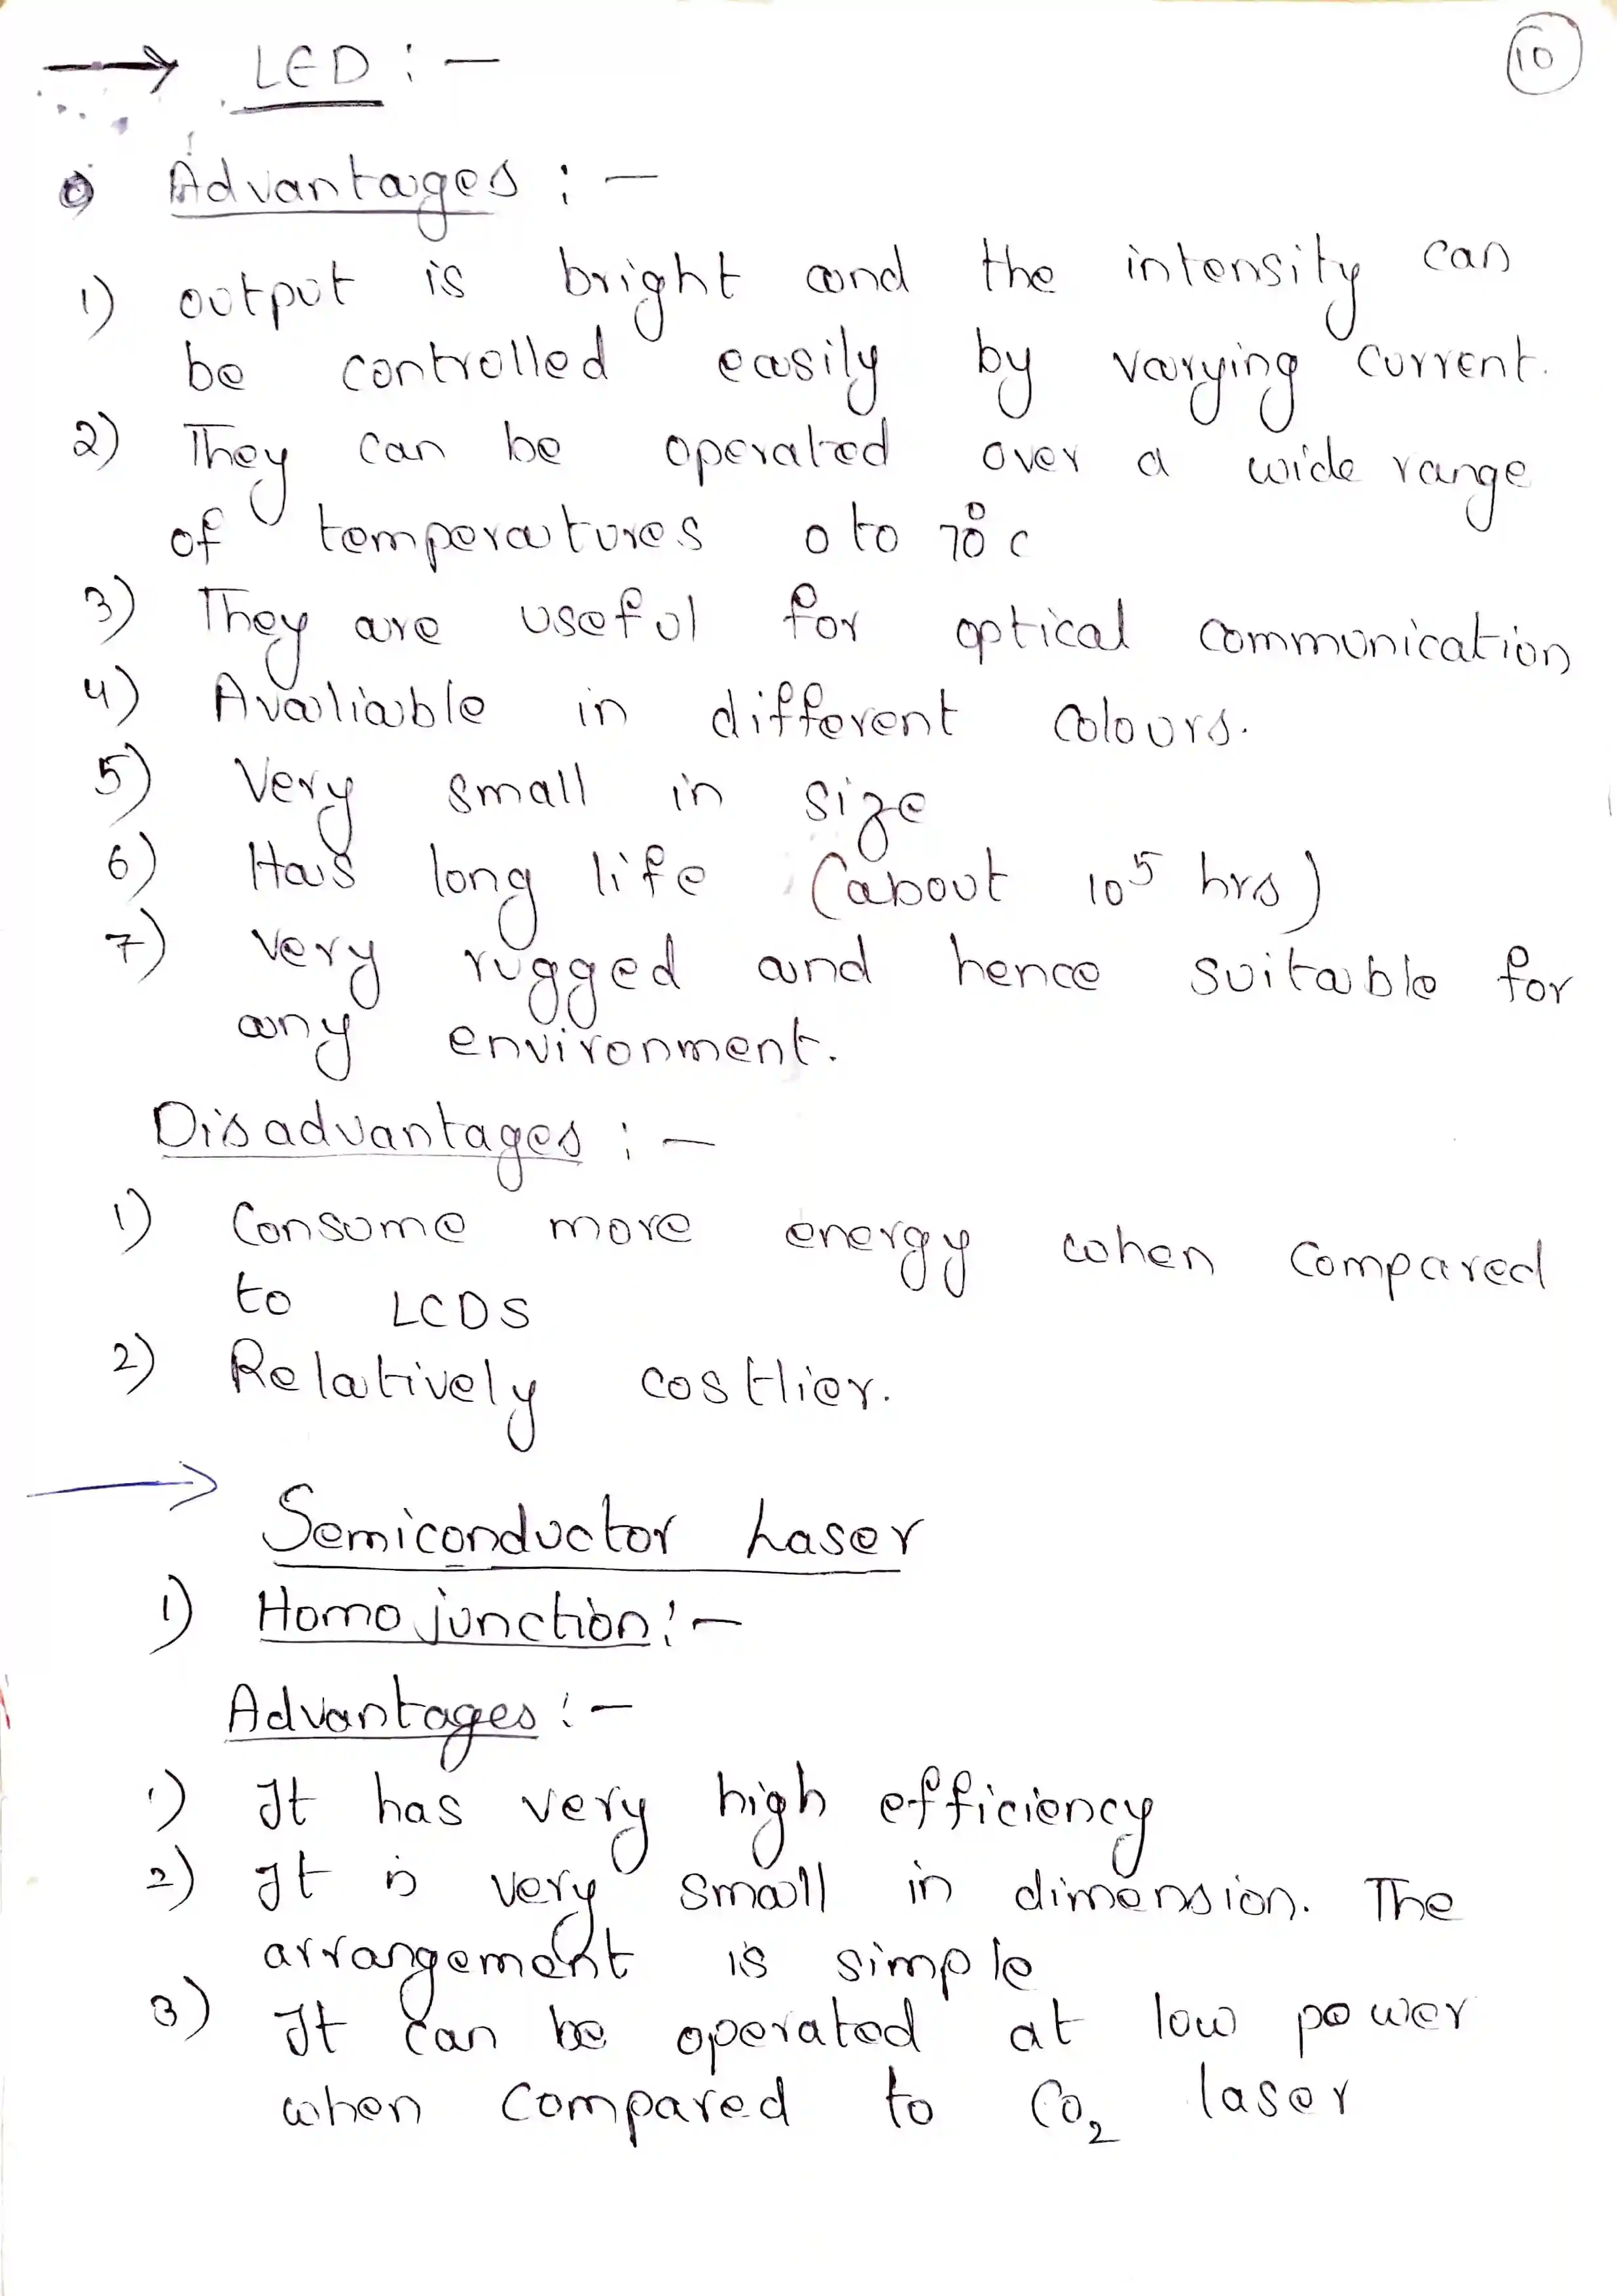 → LED :-
10
Advantages :-
1) output is bright and the intensity can
be controlled easily by varying current.
2) They can be operated over a wide range
of temperatures 0 to 70°c
3) They are useful for optical communication
4) Avaliable in different colours.
5) Very small in size
6) Has long life (about 10⁵ hrs)
7) Very rugged and hence suitable for
any environment.
Disadvantages :-
1) Consume more energy when compared
to LCDS
2) Relatively costlier.
→
Semiconductor Laser
1) Homo junction :-
Advantages :-
1) It has very high efficiency
2) It is very small in dimension. The
arrangement is simple
3) It can be operated at low power
when compared to CO₂ laser